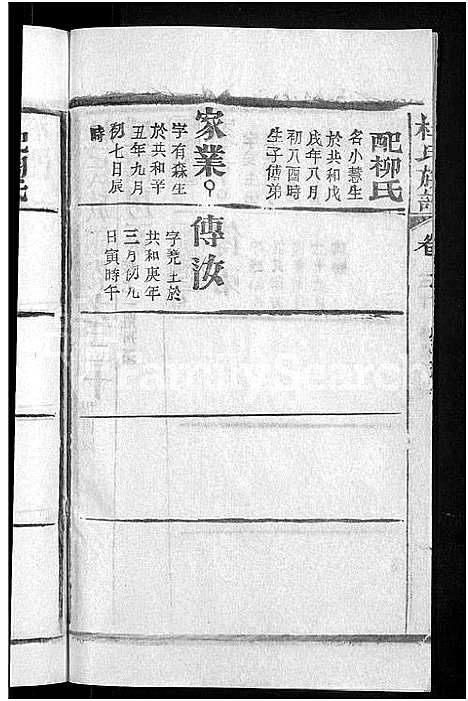 氏族譜
卷
配柳氏
名小慧生
於共和戊
戌年八月
初八酉時
生子傳弟
家業
字有森生
於共和辛
丑年九月
初七日辰
時
傳汝
字堯土於
共和庚年
三月初九
日寅時午
FamilySearch